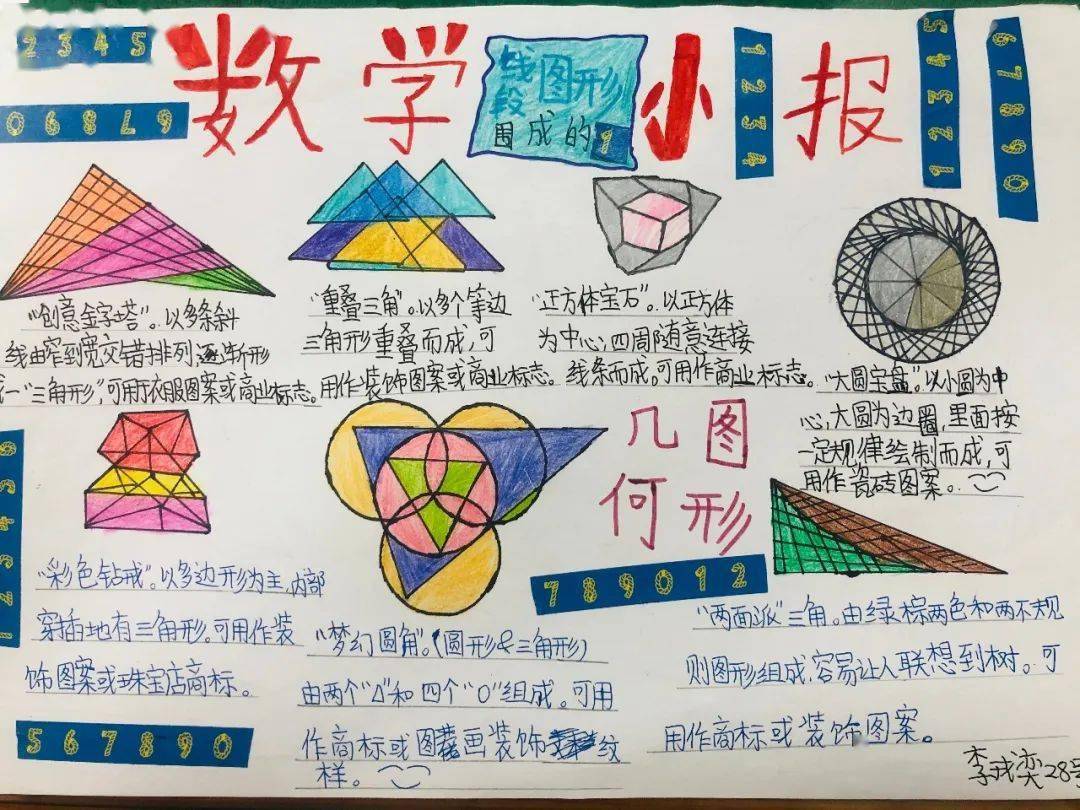 2345
069879
数学
线段图形
围成的1
小报
1234
54321
67890
"创意金字塔"。以多条斜
线由窄到宽交错排列,逐渐形
成一"三角形",可用于衣服图案或商业标志。
"重叠三角"。以多个等边
三角形重叠而成,可
用作装饰图案或商业标志。
"正方体宝石"。以正方体
为中心,四周随意连接
线条而成。可用作商业标志。
"大圆宝盘"。以小圆为中
心,大圆为边圈,里面按
一定规律绘制而成,可
用作瓷砖图案。
几何图形
789012
"彩色钻戒"。以多边形为主,内部
穿插地有三角形。可用作装
饰图案或珠宝店商标。
567890
"梦幻圆角"。(圆形&三角形)
由两个"Δ"和四个"O"组成。可用
作商标或图画装饰纹
样。
"两面派"三角。由绿棕两色和两不规
则图形组成,容易让人联想到树。可
用作商标或装饰图案。
28号